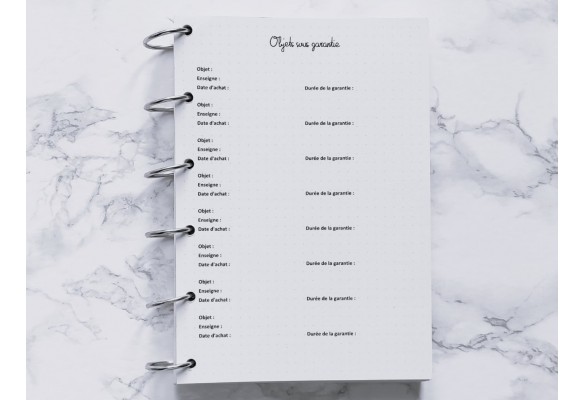 Objets sous garantie
Objet :
Enseigne :
Date d'achat : Durée de la garantie :
Objet :
Enseigne :
Date d'achat : Durée de la garantie :
Objet :
Enseigne :
Date d'achat : Durée de la garantie :
Objet :
Enseigne :
Date d'achat : Durée de la garantie :
Objet :
Enseigne :
Date d'achat : Durée de la garantie :
Objet :
Enseigne :
Date d'achat : Durée de la garantie :
Objet :
Enseigne :
Date d'achat : Durée de la garantie :
Objet :
Enseigne :
Date d'achat : Durée de la garantie :